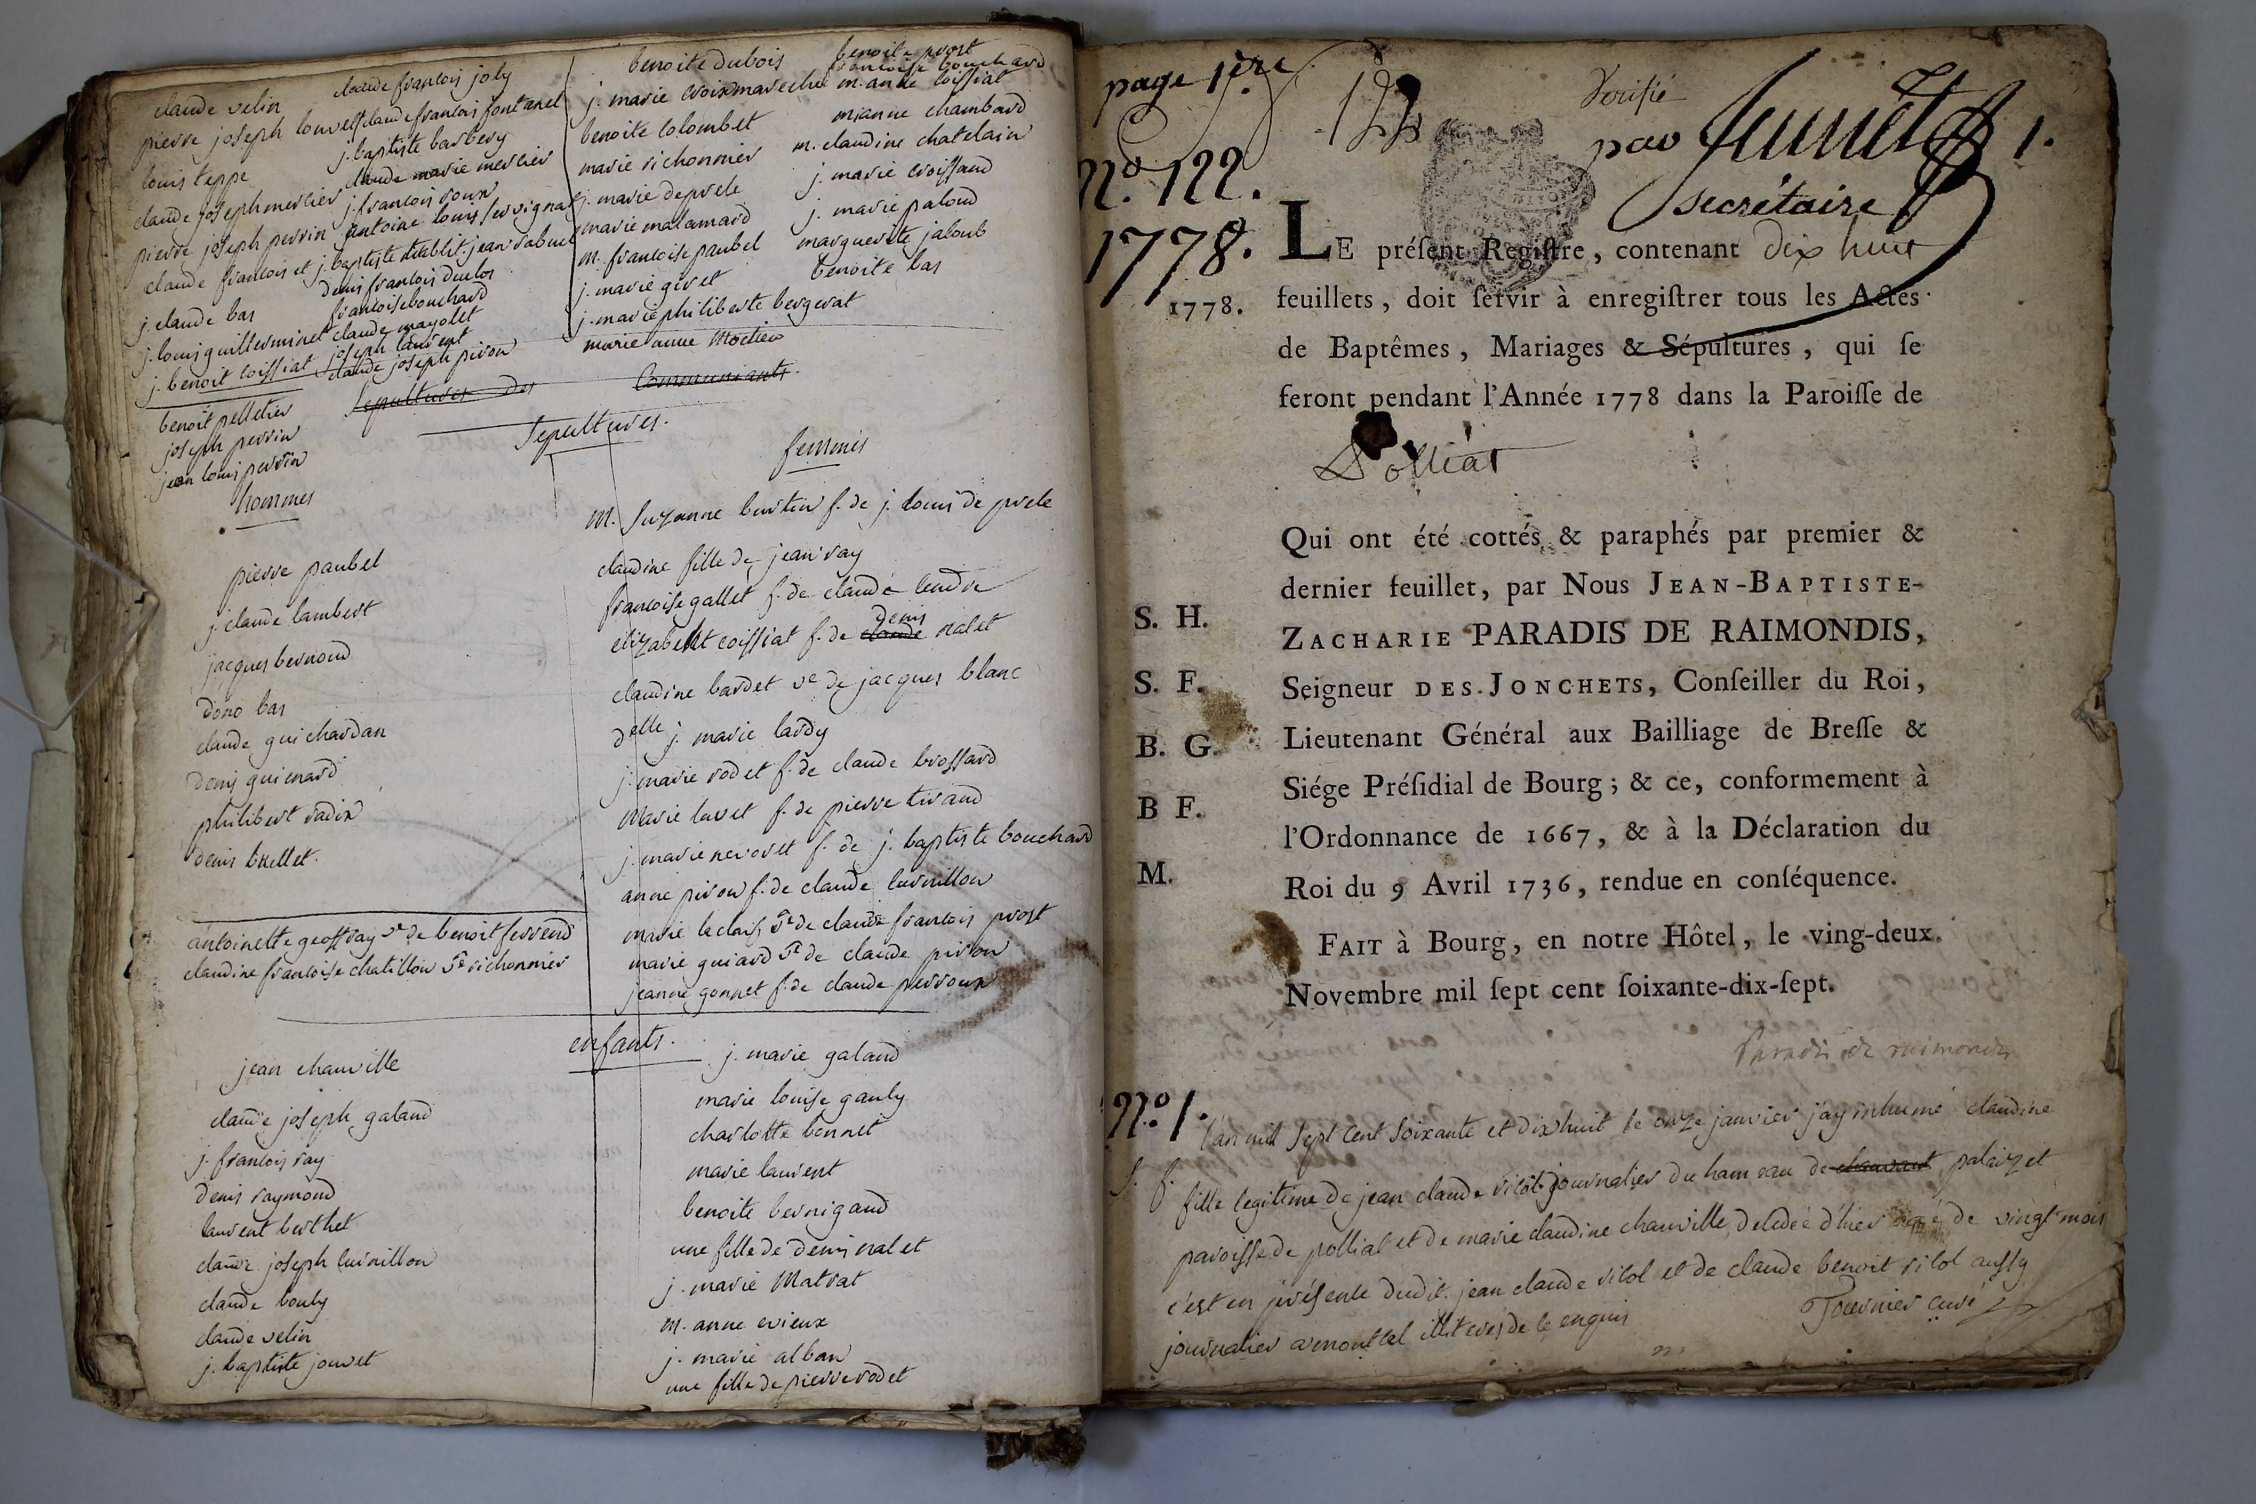 claude velin
pierre joseph louvet
louis teppe
claude joseph mercier
pierre joseph perrin
claude francois et j. baptiste
j. claude bas
j. louis guillerminet
j. benoit coissiat
benoit pelletier
joseph perrin
jean louis perrin
claude francois joly
claude francois fontanel
j. baptiste barbery
claude marie mercier
j. francois roux
antoine louis servignat
jean rabuel
denis francois duclos
francoise bouchard
claude mayolet
joseph laurent
claude joseph piron
benoite dubois
j. marie croixmareche
benoite colombet
marie richonnier
j. marie deprele
marie malamard
m. francoise paubel
j. marie giret
j. marie philiberte bergerat
marie anne
benoite prost
francoise bouchard
m. anne coissiat
m. anne chambard
m. claudine chatelain
j. marie croissand
j. marie paloud
marguerite jaloub
benoite bas
Sepultures des Communiants.
Sepultures.
hommes
pierre paubel
j. claude lambert
jacques bernoud
bas
claude guichardan
denis guienard
philibert radix
denis
antoinette geoffray ve de benoit ferrend
claudine francoise chatillon ve richonnier
femmes
m. Suzanne burtin f. de j. louis de prele
claudine fille de jean ray
francoise gallet f. de claude
elizabeth coissiat f. de claude denis nalet
claudine bardet ve de jacques blanc
delle j. marie lardy
j. marie rodet f. de claude brossard
marie luvet f. de pierre tirand
j. marie f. de j. baptiste bouchard
anne piron f. de claude curnillon
marie leclair ve de claude francois prost
marie guiard ve de claude piron
jeanne gonnet f. de claude perroux
enfants.
jean chanville
claude joseph galand
j. francois ray
denis raymond
laurent berthet
claude joseph curnillon
claude bouly
claude velin
j. baptiste jouvet
j. marie galand
marie louise gauly
charlotte bonnet
marie laurent
benoite bernigaud
une fille de denis nalet
j. marie Matrat
m. anne evieux
j. marie alban
une fille de pierre rodet
page 1ere
No. 122.
1778.
1778.
Verifié
par
secrétaire
1.
LE préſent Regiſtre, contenant dix huit
feuillets, doit ſervir à enregiſtrer tous les Actes
de Baptêmes, Mariages & Sépultures, qui ſe
feront pendant l'Année 1778 dans la Paroiſſe de
Polliat
Qui ont été cottés & paraphés par premier &
dernier feuillet, par Nous JEAN-BAPTISTE-
ZACHARIE PARADIS DE RAIMONDIS,
Seigneur DES JONCHETS, Conſeiller du Roi,
Lieutenant Général aux Bailliage de Breſſe &
Siége Préſidial de Bourg; & ce, conformement à
l'Ordonnance de 1667, & à la Déclaration du
Roi du 9 Avril 1736, rendue en conſéquence.
FAIT à Bourg, en notre Hôtel, le ving-deux
Novembre mil ſept cent ſoixante-dix-ſept.
S. H.
S. F.
B. G.
B F.
M.
Paradis de raimondis
No 1.
S. f.
l'an mil sept cent soixante et dix huit le onze janvier j'ay inhumé claudine
fille legitime de jean claude vilot journalier du hameau de palaizet
paroisse de polliat et de marie claudine chanville decedée d'hier agée de vingt mois
c'est en présence dudit jean claude vilol et de claude benoit vilol aussy
journalier a montcel illiteres de ce enquis
Tournier curé